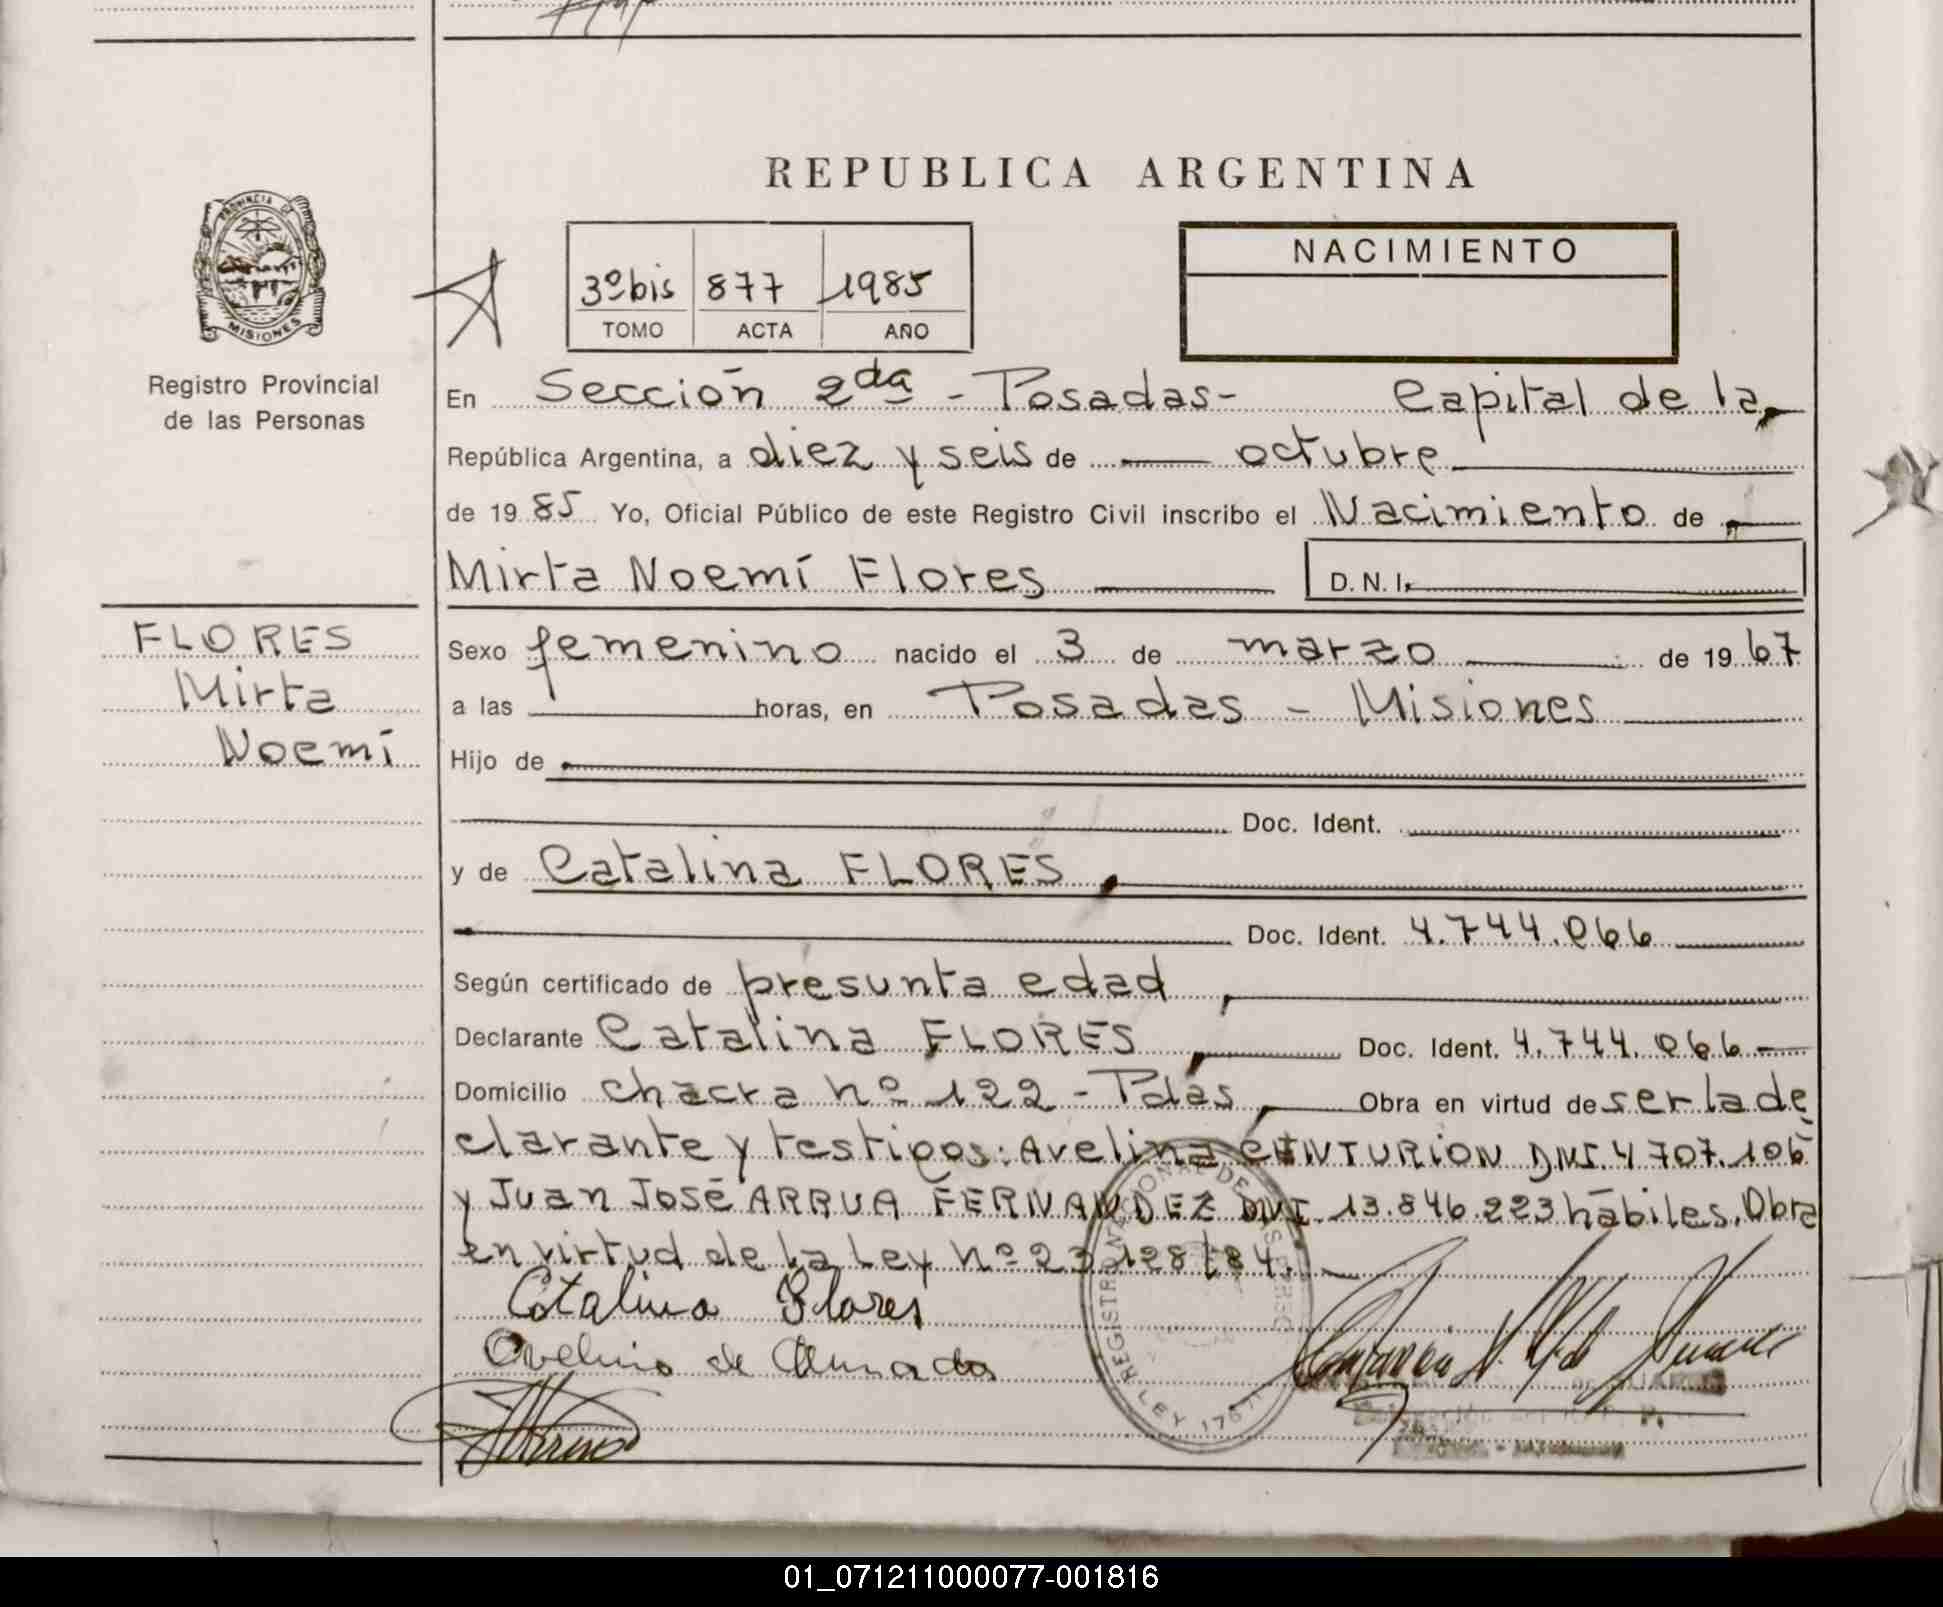 REPUBLICA ARGENTINA
PROVINCIA DE
MISIONES
Registro Provincial
de las Personas
3º bis 877 1985
TOMO ACTA AÑO
NACIMIENTO
En Sección 2da - Posadas - Capital de la
República Argentina, a diez y seis de octubre
de 1985 Yo, Oficial Público de este Registro Civil inscribo el Nacimiento de
Mirta Noemí Flores D.N.I.
FLORES
Mirta
Noemí
Sexo femenino nacido el 3 de marzo de 1967
a las horas, en Posadas - Misiones
Hijo de
Doc. Ident.
y de Catalina FLORES
Doc. Ident. 4.744.066
Según certificado de presunta edad
Declarante Catalina FLORES Doc. Ident. 4.744.066
Domicilio chacra nº 122 - Pdas Obra en virtud de ser la de
clarante y testigos: Avelina CENTURION DNI. 4707.106
y Juan José ARRUA FERNANDEZ DNI. 13.846.223 hábiles. Obra
en virtud de la Ley nº 23.128/84.
Catalina Flores
REGISTRO NACIONAL DE LAS PERSO
LEY 1767
01_071211000077-001816